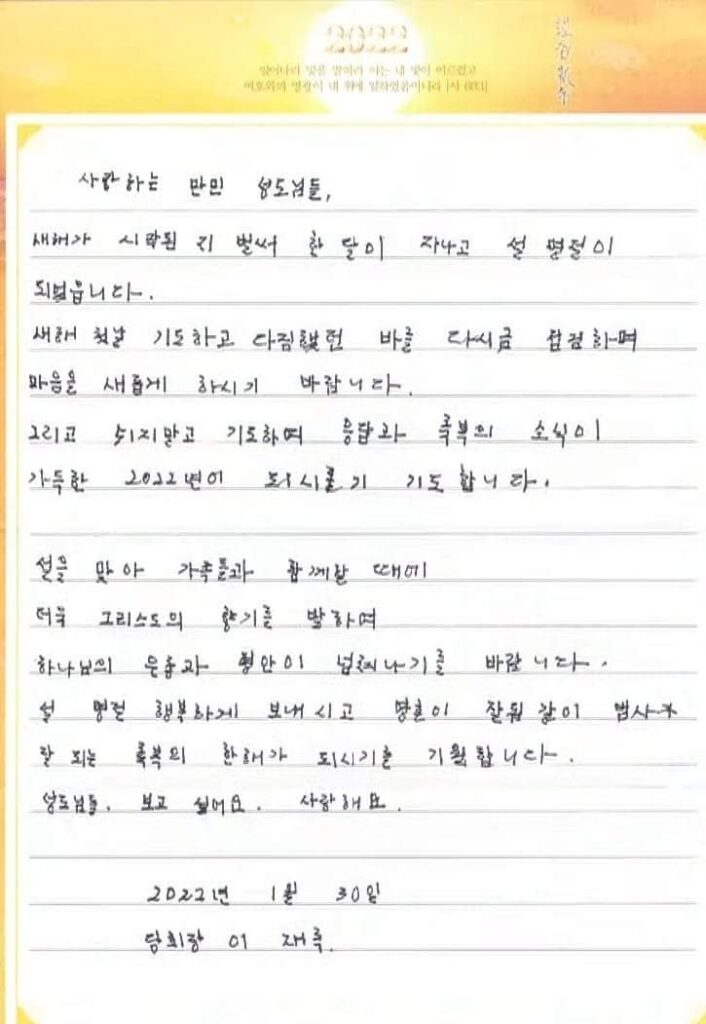 2022
일어나라 빛을 발하라 이는 네 빛이 이르렀고
여호와의 영광이 네 위에 임하였음이니라 [사 60:1]
사랑하는 만민 성도님들,
새해가 시작된 지 벌써 한 달이 지나고 설 명절이
되었습니다.
새해 첫날 기도하고 다짐했던 바를 다시금 점검하며
마음을 새롭게 하시기 바랍니다.
그리고 쉬지말고 기도하여 응답과 축복의 소식이
가득한 2022년이 되시롤기 기도합니다.
설을 맞아 가족들과 함께할 때에
더욱 그리스도의 향기를 발하여
하나님의 은총과 평안이 넘쳐나기를 바랍니다.
설 명절 행복하게 보내시고 영혼이 잘됨 같이 범사가
잘 되는 축복의 한해가 되시기를 기원합니다.
성도님들. 보고 싶어요. 사랑해요.
2022년 1월 30일
당회장 이 재록.